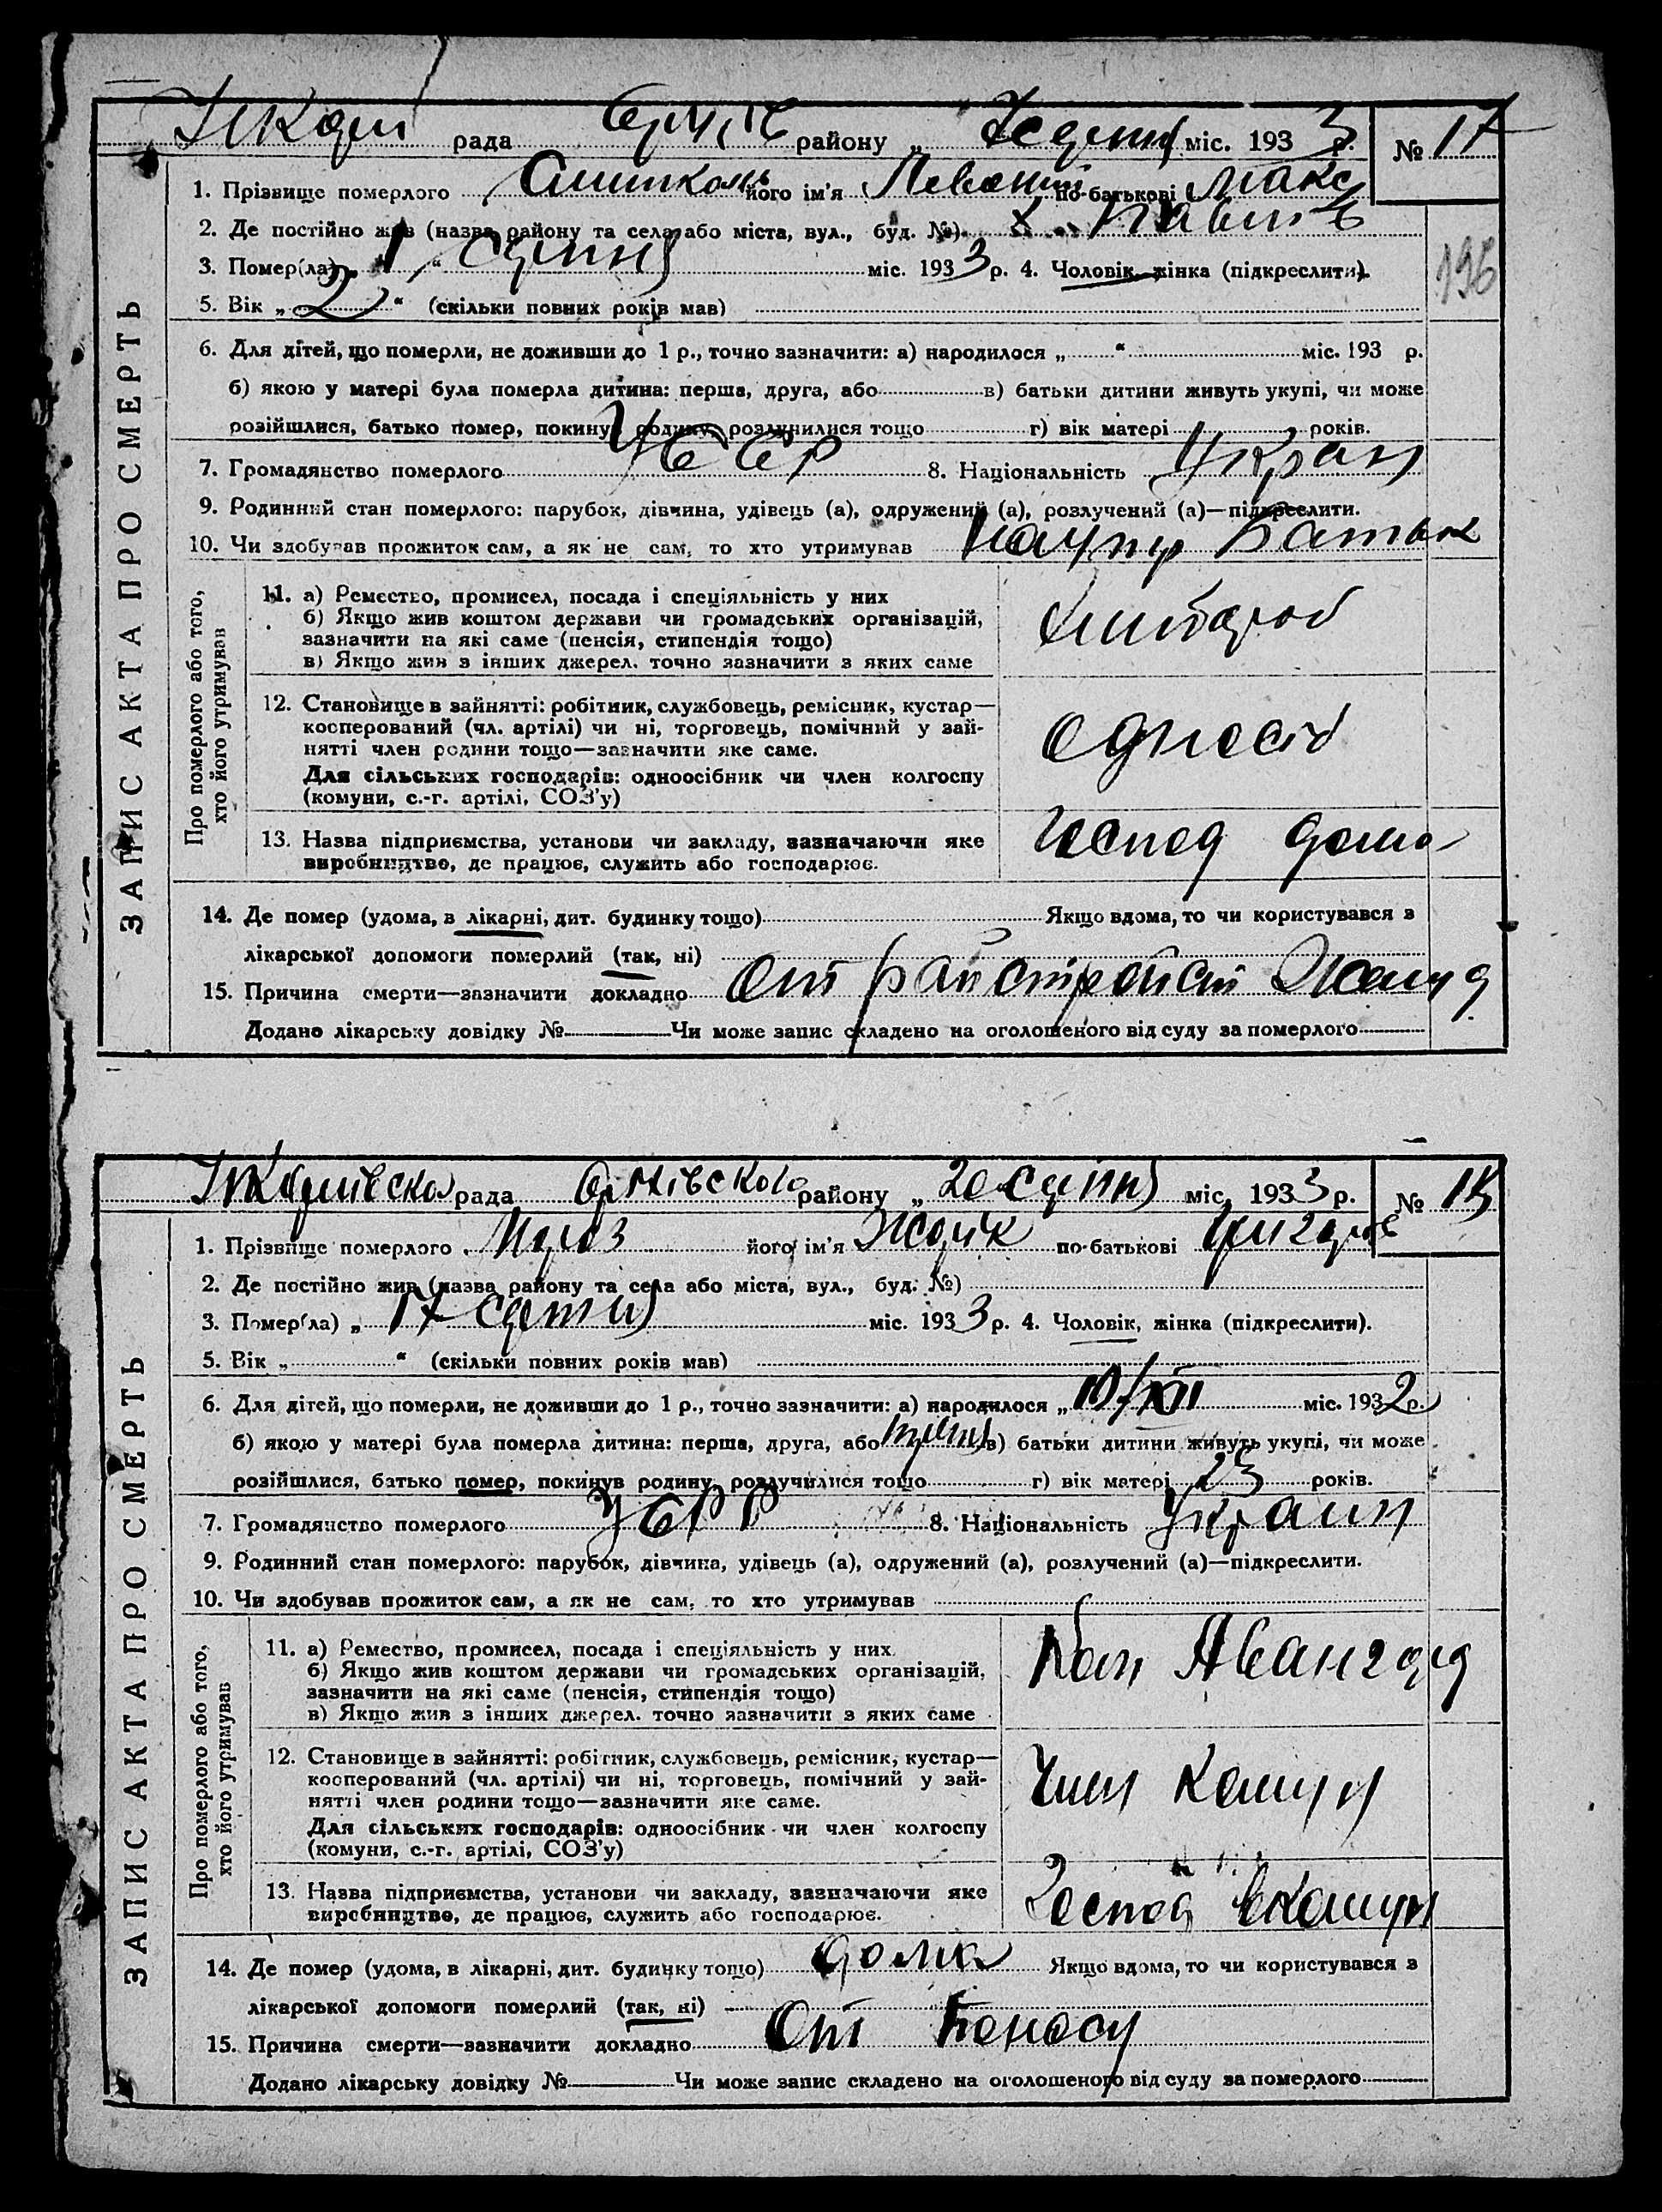 рада района „ міс. 1933 р. № 17
1. Прізвище померлого його ім'я по-батькові Макс
2. Де постійно жив (назва району та села або міста, вул., буд. №) х.
3. Помер(ла) „ 1 “ серпня міс. 1933 р. 4. Чоловік, жінка (підкреслити).
5. Вік „ 2 “ (скільки повних років мав)
6. Для дітей, що померли, не доживши до 1 р., точно зазначити: а) народилося „ “ міс. 193 р.
б) якою у матері була померла дитина: перша, друга, або в) батьки дитини живуть укупі, чи може
розійшлися, батько помер, покинув родину, розлучилися тощо г) вік матері років.
7. Громадянство померлого УССР 8. Національність Украин
9. Родинний стан померлого: парубок, дівчина, удівець (а), одружений (а), розлучений (а)—підкреслити.
10. Чи здобував прожиток сам, а як не сам, то хто утримував Батьк
ЗАПИС АКТА ПРО СМЕРТЬ
Про померлого або того, хто його утримував
11. а) Ремество, промисел, посада і спеціяльність у них
б) Якщо жив коштом держави чи громадських організацій,
зазначити на які саме (пенсія, стипендія тощо)
в) Якщо жив з інших джерел, точно зазначити з яких саме
хлибороб
12. Становище в зайнятті: робітник, службовець, ремісник, кустар—
кооперований (чл. артілі) чи ні, торговець, помічний у зай-
нятті член родини тощо—зазначити яке саме.
Для сільських господарів: одноосібник чи член колгоспу
(комуни, с.-г. артілі, СОЗ'у)
односіб
13. Назва підприємства, установи чи закладу, зазначаючи яке
виробництво, де працює, служить або господарює.
Господ дома
14. Де помер (удома, в лікарні, дит. будинку тощо) Якщо вдома, то чи користувався з
лікарської допомоги померлий (так, ні)
15. Причина смерти—зазначити докладно От
Додано лікарську довідку № Чи може запис складено на оголошеного від суду за померлого
196
рада района „ 20 серпня міс. 1933 р. №
1. Прізвище померлого Мороз його ім'я по-батькові Григоров
2. Де постійно жив (назва району та села або міста, вул., буд. №)
3. Помер(ла) „ 17 серпня міс. 1933 р. 4. Чоловік, жінка (підкреслити).
5. Вік „ “ (скільки повних років мав)
6. Для дітей, що померли, не доживши до 1 р., точно зазначити: а) народилося „ 10/XII міс. 1932 р.
б) якою у матері була померла дитина: перша, друга, або в) батьки дитини живуть укупі, чи може
розійшлися, батько помер, покинув родину, розлучилися тощо г) вік матері 23 років.
7. Громадянство померлого УСРР 8. Національність Украин
9. Родинний стан померлого: парубок, дівчина, удівець (а), одружений (а), розлучений (а)—підкреслити.
10. Чи здобував прожиток сам, а як не сам, то хто утримував
ЗАПИС АКТА ПРО СМЕРТЬ
Про померлого або того, хто його утримував
11. а) Ремество, промисел, посада і спеціяльність у них
б) Якщо жив коштом держави чи громадських організацій,
зазначити на які саме (пенсія, стипендія тощо)
в) Якщо жив з інших джерел, точно зазначити з яких саме
Авангард
12. Становище в зайнятті: робітник, службовець, ремісник, кустар—
кооперований (чл. артілі) чи ні, торговець, помічний у зай-
нятті член родини тощо—зазначити яке саме.
Для сільських господарів: одноосібник чи член колгоспу
(комуни, с.-г. артілі, СОЗ'у)
Член Комун
13. Назва підприємства, установи чи закладу, зазначаючи яке
виробництво, де працює, служить або господарює.
Господ в комун
14. Де помер (удома, в лікарні, дит. будинку тощо) дома Якщо вдома, то чи користувався з
лікарської допомоги померлий (так, ні)
15. Причина смерти—зазначити докладно От Поносу
Додано лікарську довідку № Чи може запис складено на оголошеного від суду за померлого